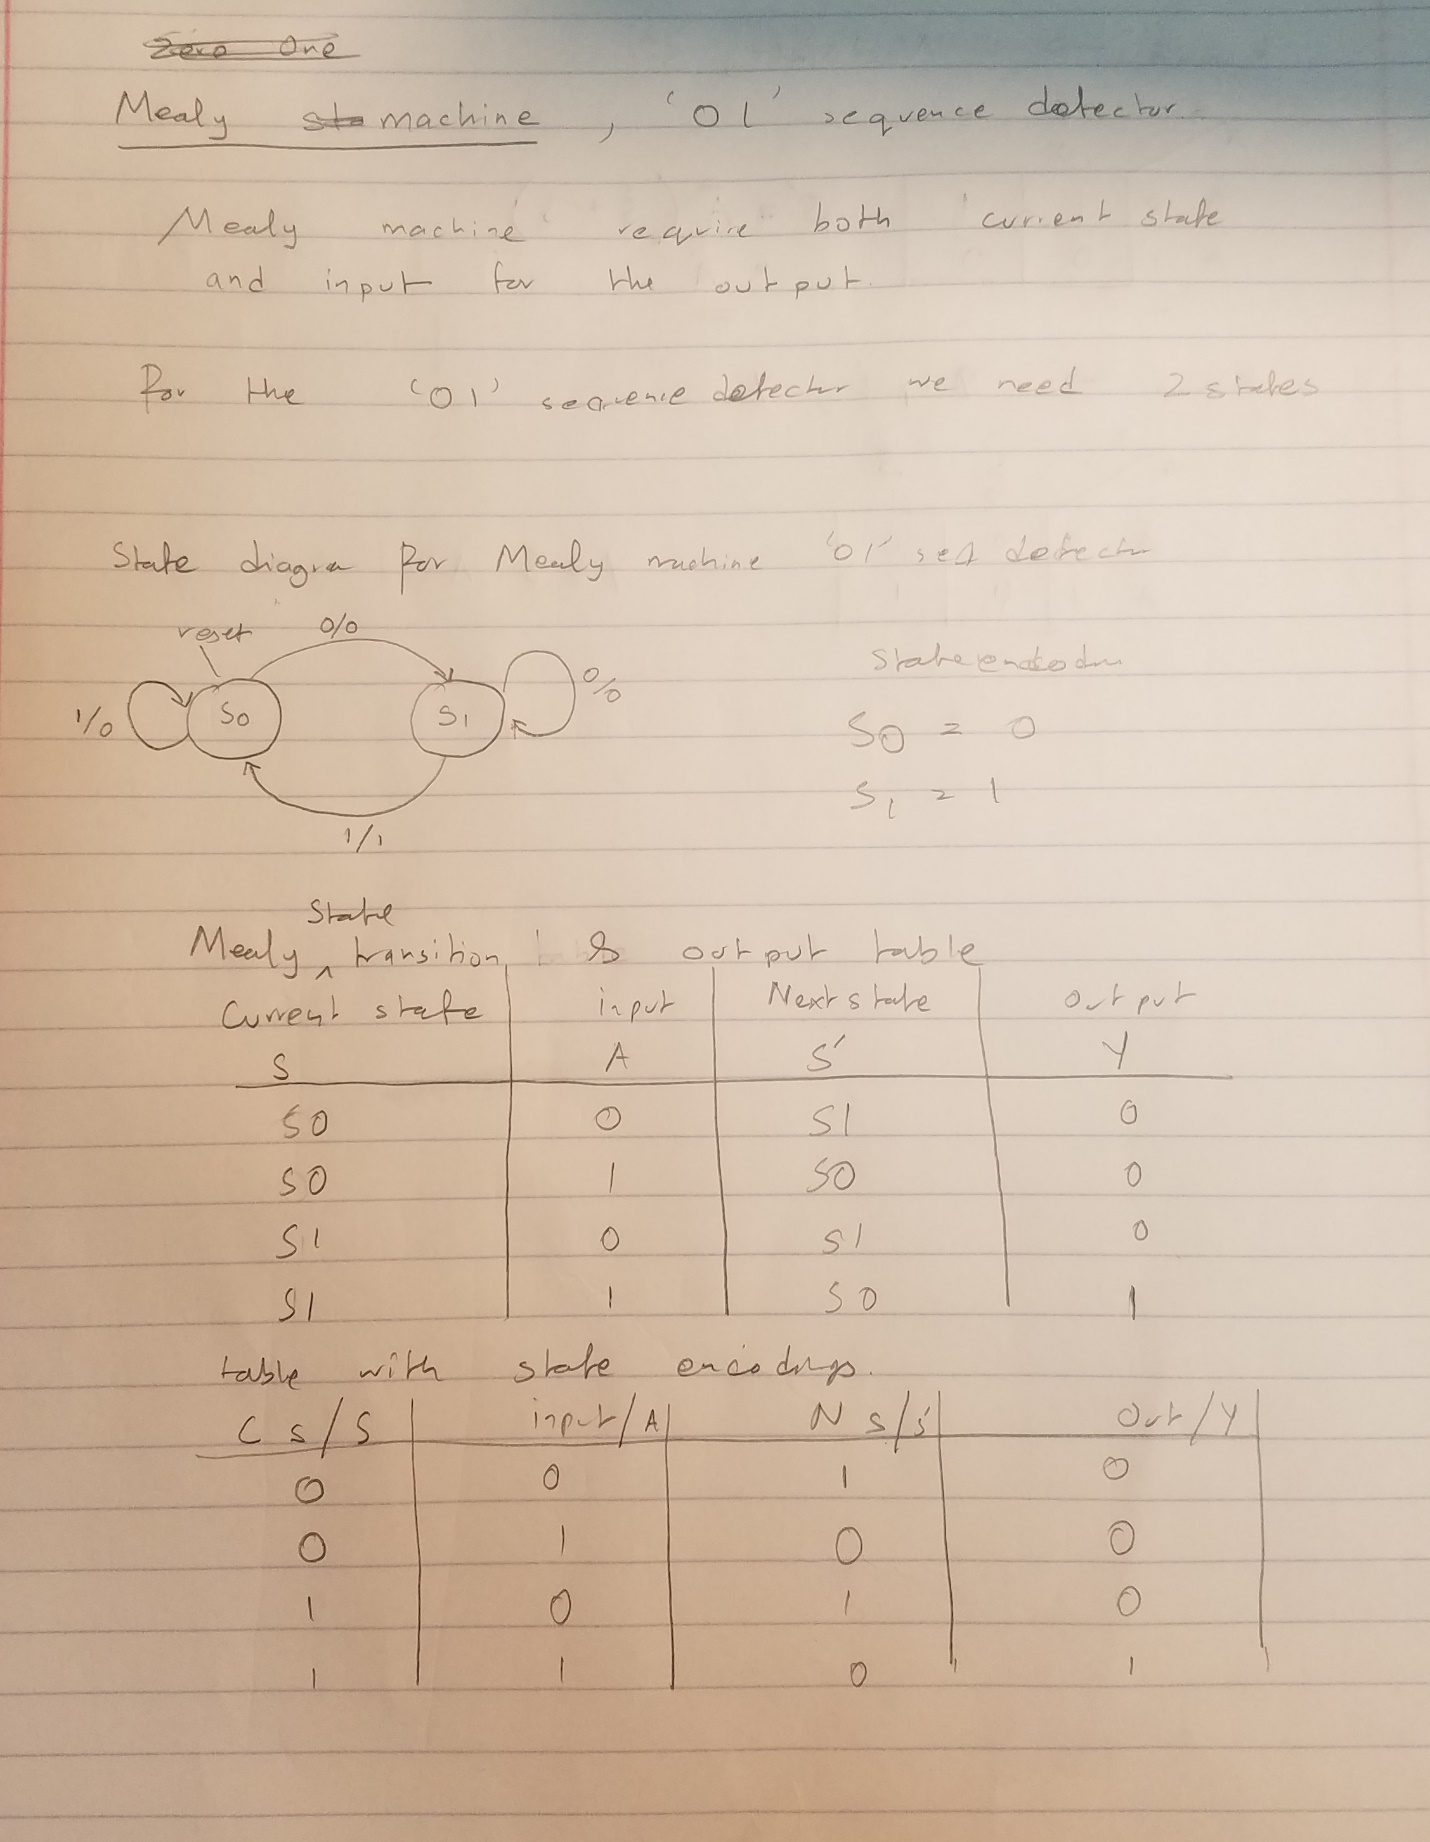 Zero One
Mealy sta machine , '01' sequence detector
Mealy machine require both current state
and input for the output.
For the '01' sequence detector we need 2 states
State diagra for Mealy machine '01' seq detect
reset 0/0
State encodin
1/0 S0 S1 0/0
S0 = 0
S1 = 1
1/1
State
Mealy ^ transition & output table
Current state input Next state Output
S A S' Y
S0 0 S1 0
S0 1 S0 0
S1 0 S1 0
S1 1 S0 1
table with state encodings.
C s/S input/A N s/s' Out/Y
0 0 1 0
0 1 0 0
1 0 1 0
1 1 0 1